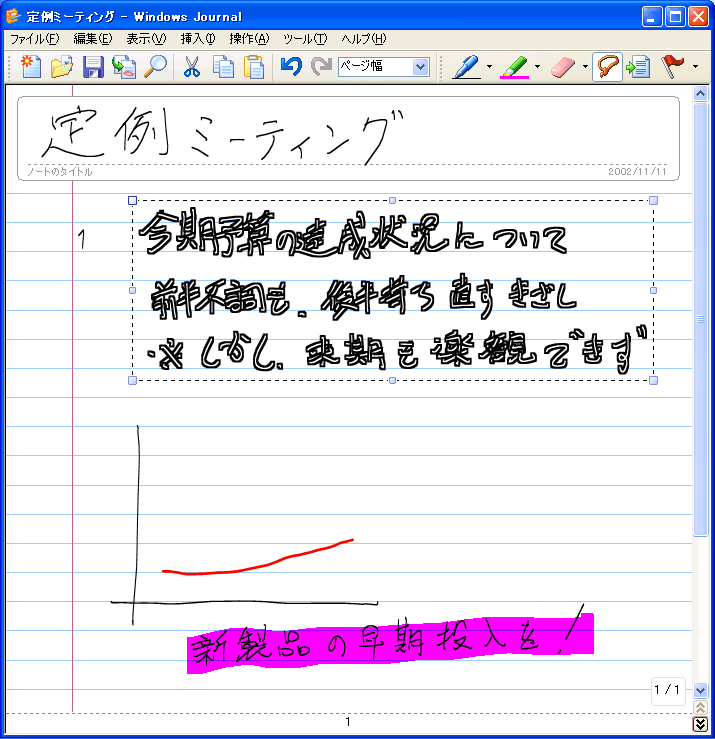 定例ミーティング - Windows Journal
ファイル(F) 編集(E) 表示(V) 挿入(I) 操作(A) ツール(T) ヘルプ(H)
ページ幅
定例ミーティング
ノートのタイトル 2002/11/11
1 今期予算の達成状況について
前半不調も、後半持ち直すきざし
※しかし、来期も楽観できず
新製品の早期投入を!
1 / 1
1